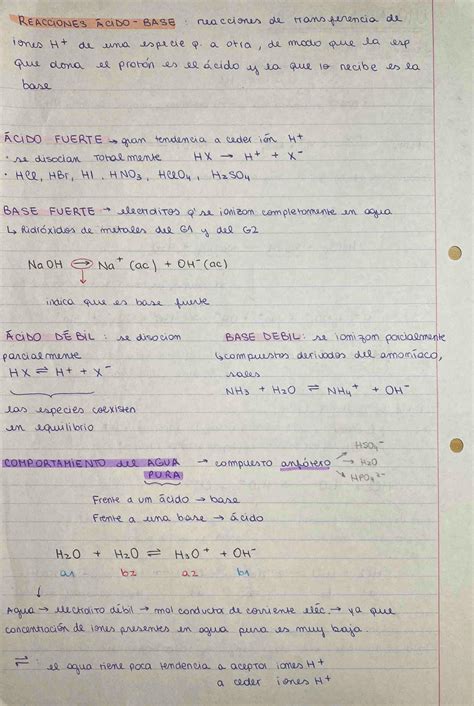 REACCIONES ÁCIDO-BASE : reacciones de transferencia de
iones H⁺ de una especie q. a otra, de modo que la esp
que dona el protón es el ácido y la que lo recibe es la
base
ÁCIDO FUERTE → gran tendencia a ceder ión H⁺
• se disocian totalmente HX → H⁺ + X⁻
• HCl, HBr, HI, HNO₃, HClO₄, H₂SO₄
BASE FUERTE → electrolitos q' se ionizan completamente en agua
↳ hidróxidos de metales del G1 y del G2
NaOH → Na⁺ (ac) + OH⁻ (ac)
indica que es base fuerte
ÁCIDO DÉBIL : se disocian
parcialmente
HX ⇌ H⁺ + X⁻
las especies coexisten
en equilibrio
BASE DÉBIL: se ionizan parcialmente
↳ compuestos derivados del amoníaco,
sales
NH₃ + H₂O ⇌ NH₄⁺ + OH⁻
COMPORTAMIENTO del AGUA PURA → compuesto anfótero → HSO₄⁻
→ H₂O
→ HPO₄²⁻
Frente a um ácido → base
Frente a una base → ácido
H₂O + H₂O ⇌ H₃O⁺ + OH⁻
a1 b2 a2 b1
Agua → electrolito débil → mal conducta de corriente eléc. → ya que
concentración de iones presentes en agua pura es muy baja.
⇌ : el agua tiene poca tendencia a aceptar iones H⁺
a ceder iones H⁺